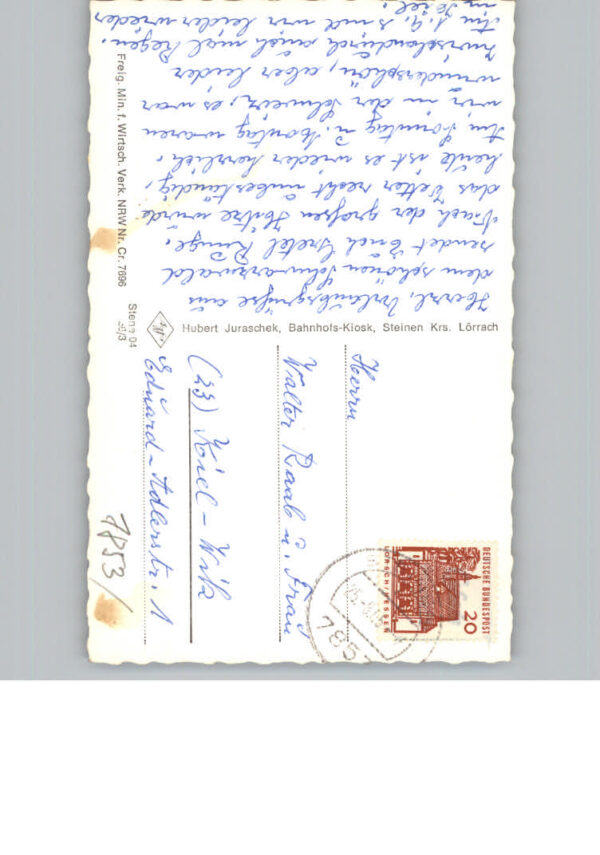 Herzl. Urlaubsgrüße aus
dem schönen Schwarzwald
sendet Euch Gretel Runge.
Nach der großen Hitze wurde
das Wetter recht unbeständig,
heute ist es wieder herrlich.
Am Sonntag u. Montag waren
wir in der Schweiz, es war
wunderschön, aber leider
zwischendurch auch mal Regen.
Am 1.9. sind wir leider wieder
in Kiel.
Freig. Min. f. Wirtsch. Verk. NRW Nr. Cr. 7696
Hubert Juraschek, Bahnhofs-Kiosk, Steinen Krs. Lörrach
Herrn
Walter Raab u. Frau
(23) Kiel-Wik
Eduard-Adlerstr. 1
7853/
DEUTSCHE BUNDESPOST
20
LORSCH/HESSEN